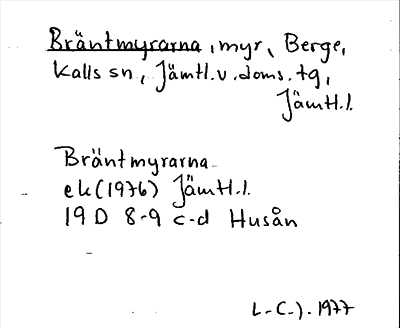 Bräntmyrarna, myr, Berge,
Kalls sn, Jämtl.v.doms.tg,
Jämtl.l.
Bräntmyrarna
ek(1976) Jämtl.l.
19 D 8-9 c-d Husån
L-C-J. 1977